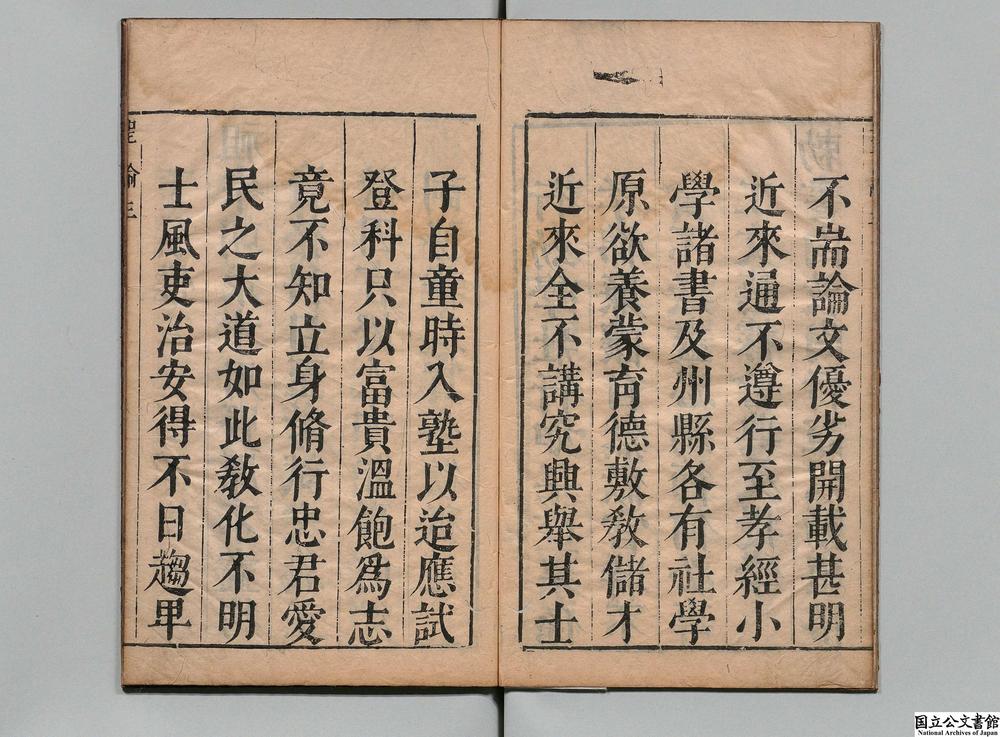 不耑論文優劣開載甚明
近來通不遵行至孝經小
學諸書及州縣各有社學
原欲養蒙育德敷敎儲才
近來全不講究興舉其士
子自童時入塾以迨應試
登科只以富貴溫飽爲志
竟不知立身脩行忠君愛
民之大道如此敎化不明
士風吏治安得不日趨卑
聖諭
国立公文書館
National Archives of Japan